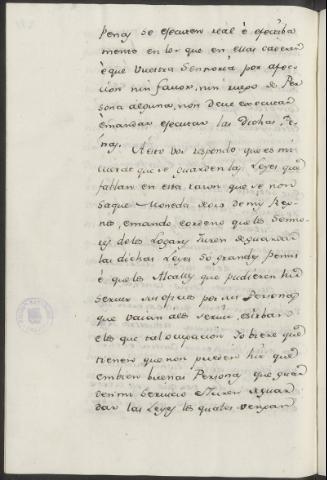 penas se esecuten real è efectiba
mente en los que en ellas cayeren
è que Vuestra Señoria por afec-
cion nin favor, nin ruego de Per
sona alguna, non deve executar
èmandar esecutar las dichas Pe-
nas. A esto vos respondo que es mi
merced que se guarden las Leyes que
fablan en esta razon que se non
saque Moneda fuera de mis Rey-
nos, è mando è ordeno que los Seño-
res de los Logares Juren de guardar
las dichas Leyes so grandes Penas
è que los Alcaldes que pudieren hir
servir sus oficios por sus Personas
que vaian alos servir, è estar
è los que tal ocupacion obiere que
tienen que non pueden hir que
embien buenas Personas que guar
den mi servicio è Juren de guar
dar las Leyes los quales vengan